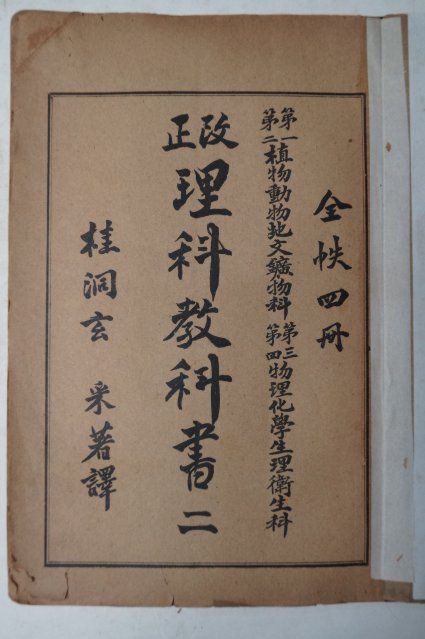 全帙四冊
第一
第二植物動物地文鑛物科
第三
第四物理化學生理衛生科
改正
理科教科書二
桂洞玄 采著譯